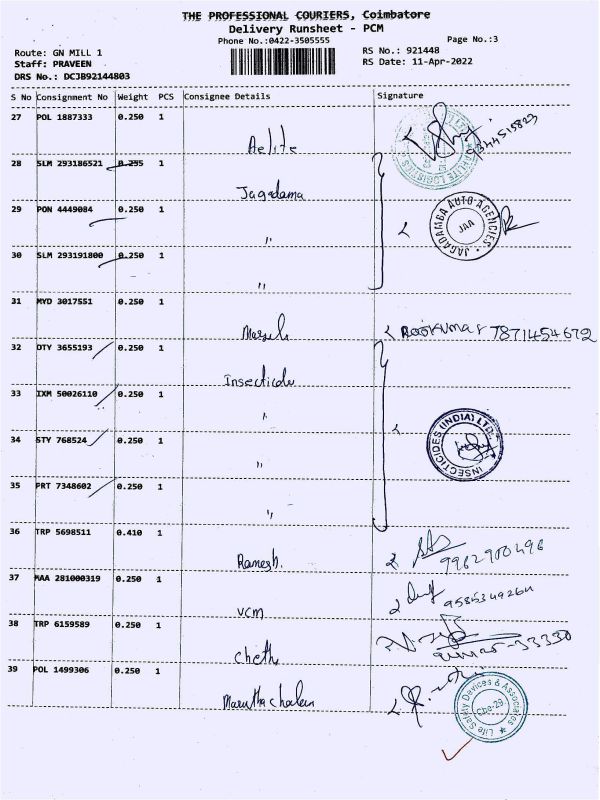 THE PROFESSIONAL COURIERS, Coimbatore
Delivery Runsheet - PCM
Phone No.:0422-3505555
Page No.:3
Route: GN MILL 1
RS No.: 921448
Staff: PRAVEEN
RS Date: 11-Apr-2022
DRS No.: DCJB92144803
S No Consignment No Weight PCS Consignee Details Signature
27 POL 1887333 0.250 1
Aelite
9344515823
28 SLM 293186521 0.255 1
Jagadama
29 PON 4449084 0.250 1
"
JAGADAMBA AUTO AGENCIES
JAA
30 SLM 293191800 0.250 1
"
31 MYD 3017551 0.250 1
7871454672
32 OTY 3655193 0.250 1
Insecticide
33 IXM 50026110 0.250 1
"
34 STY 768524 0.250 1
"
INSECTICIDES (INDIA) LTD.
35 PRT 7348602 0.250 1
"
36 TRP 5698511 0.410 1
Ramesh.
9962900496
37 MAA 281000319 0.250 1
VCM
9585349264
38 TRP 6159589 0.250 1
Cheth
33330
39 POL 1499306 0.250 1
Marutha chalam
Life Safety Devices & Associates
Cbe-29